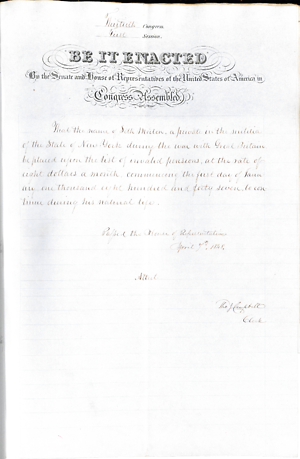 Thirtieth Congress
First Session
BE IT ENACTED
By the Senate and House of Representatives of the United States of America in
Congress Assembled,
That the name of Seth Morton, a private in the militia
of the State of New York during the war with Great Britain
be placed upon the list of invalid pensions, at the rate of
eight dollars a month commencing the first day of Janu
ary one thousand eight hundred and forty seven, to con
tinue during his natural life.
Passed the House of Representatives
April 7th, 1848
Attest
Tho J Campbell
Clerk